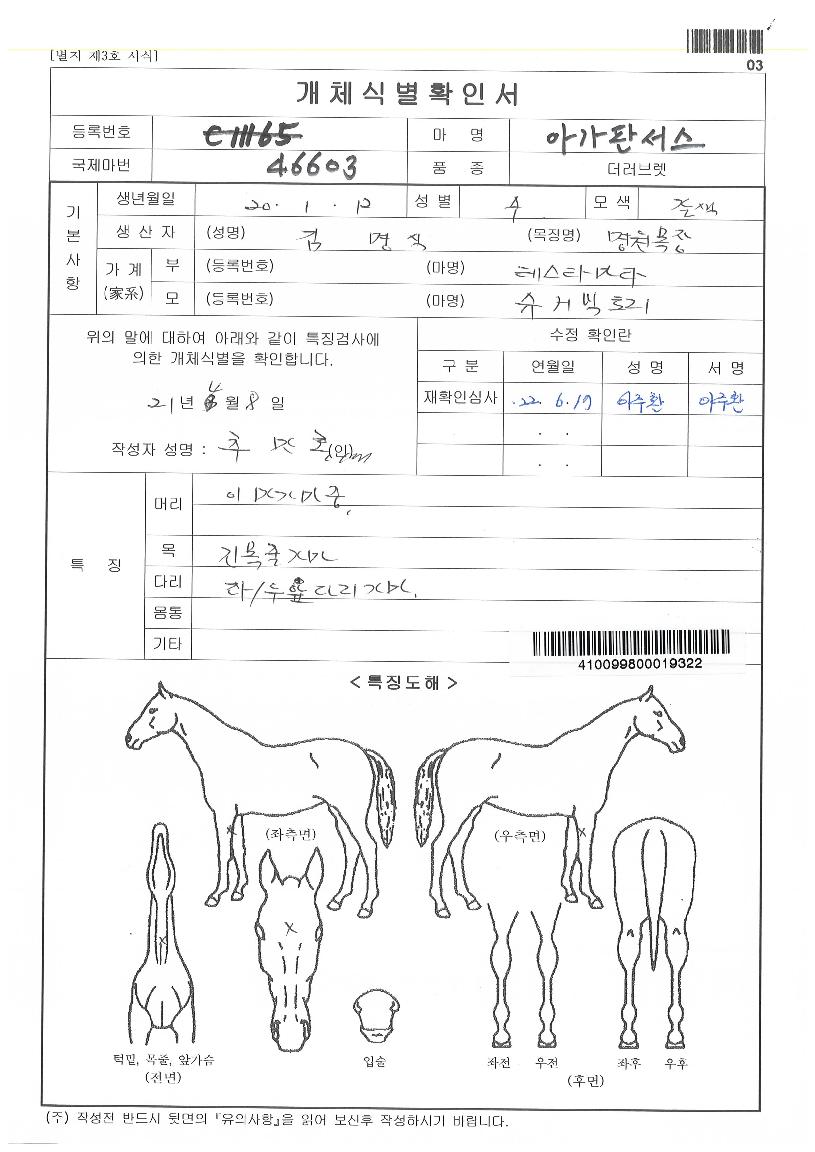 [별지 제3호 서식]
03
개체식별확인서
등록번호 마 명 아가판서스
국제마번 46603 품 종 더러브렛
기본사항
생년월일 20. 1. 12 성별 수 모색
생산자 (성명) 김 명 식 (목장명) 명천목장
가계 (家系) 부 (등록번호) (마명) 테스타마타
모 (등록번호) (마명) 슈거빅
위의 말에 대하여 아래와 같이 특징검사에
의한 개체식별을 확인합니다.
21년 4월 8일
작성자 성명 : (인)
수정 확인란
구 분 언월일 성 명 서 명
재확인심사 .22. 6.19 이주환 이주환
. .
. .
특 징
머리
목
다리
몸통
기타
410099800019322
<특징도해>
(좌측면) (우측면)
턱밑, 목줄, 앞가슴
(전면)
입술
좌전 우전 좌후 우후
(후면)
(주) 작성전 반드시 뒷면의 『유의사항』을 읽어 보신후 작성하시기 비랍니다.